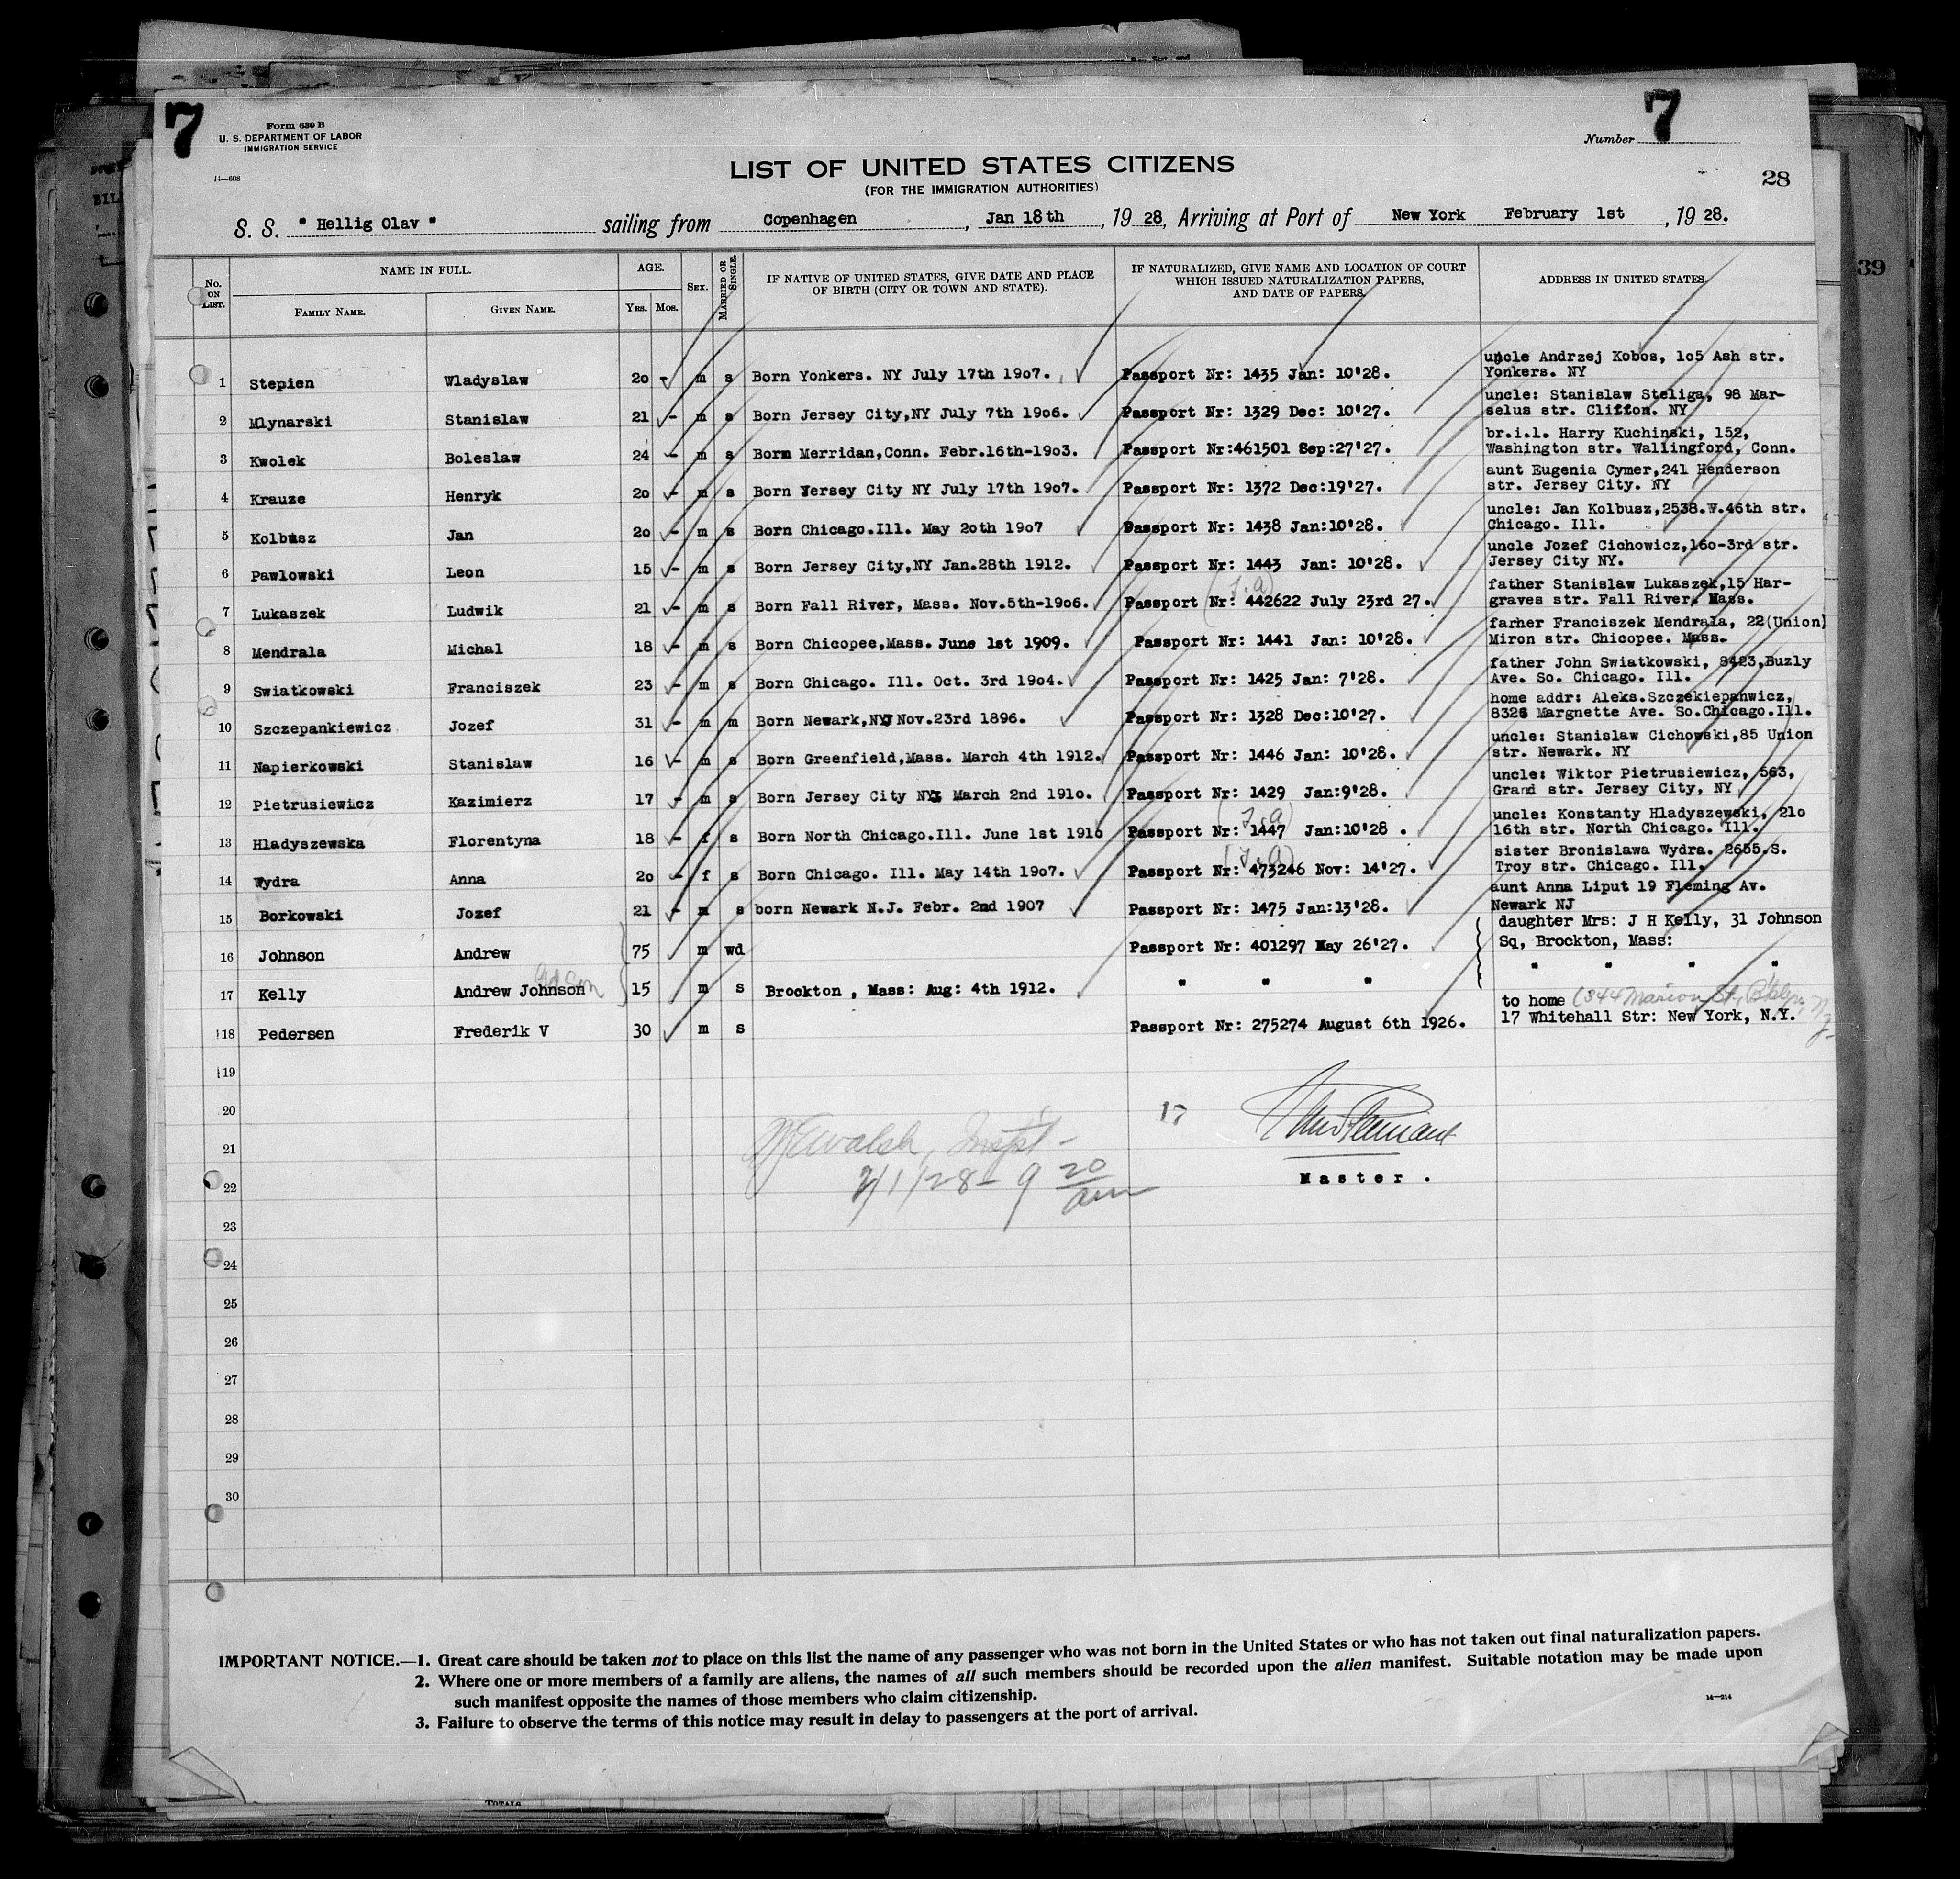 7
Form 630 B
U. S. DEPARTMENT OF LABOR
IMMIGRATION SERVICE
14—608
Number 7
28
LIST OF UNITED STATES CITIZENS
(FOR THE IMMIGRATION AUTHORITIES)
S. S. " Hellig Olav " sailing from Copenhagen, Jan 18th, 19 28, Arriving at Port of New York February 1st, 19 28.
39
No. ON LIST. NAME IN FULL. AGE. SEX. MARRIED OR SINGLE. IF NATIVE OF UNITED STATES, GIVE DATE AND PLACE OF BIRTH (CITY OR TOWN AND STATE). IF NATURALIZED, GIVE NAME AND LOCATION OF COURT WHICH ISSUED NATURALIZATION PAPERS, AND DATE OF PAPERS. ADDRESS IN UNITED STATES.
FAMILY NAME. GIVEN NAME. YRS. MOS.
uncle Andrzej Kobos, 1o5 Ash str.
1 Stepien Wladyslaw 2o - m s Born Yonkers. NY July 17th 19o7. Passport Nr: 1435 Jan: 10'28. Yonkers. NY
uncle: Stanislaw Steliga, 98 Mar-
2 Mlynarski Stanislaw 21 - m s Born Jersey City,NY July 7th 19o6. Passport Nr: 1329 Dec: 10'27. selus str. Cliffon. NY
br.i.l. Harry Kuchinski, 152,
3 Kwolek Boleslaw 24 - m s Born Merridan,Conn. Febr.16th-19o3. Passport Nr:461501 Sep:27'27. Washington str. Wallingford, Conn.
aunt Eugenia Cymer,241 Henderson
4 Krauze Henryk 2o - m s Born Jersey City NY July 17th 19o7. Passport Nr: 1372 Dec:19'27. str. Jersey City. NY
uncle: Jan Kolbusz,2538.W.46th str.
5 Kolbusz Jan 2o - m s Born Chicago.Ill. May 2oth 19o7 Passport Nr: 1438 Jan:10'28. Chicago. Ill.
uncle Jozef Cichowicz,16o-3rd str.
6 Pawlowski Leon 15 - m s Born Jersey City,NY Jan.28th 1912. Passport Nr: 1443 Jan: 10'28. Jersey City NY.
father Stanislaw Lukaszek,15 Har-
7 Lukaszek Ludwik 21 - m s Born Fall River, Mass. Nov.5th-19o6. Passport Nr: 442622 July 23rd 27. graves str. Fall River. Mass.
farher Franciszek Mendrala, 22(Union)
8 Mendrala Michal 18 - m s Born Chicopee,Mass. June 1st 1909. Passport Nr: 1441 Jan: 10'28. Miron str. Chicopee. Mass.
father John Swiatkowski, 8423,Buzly
9 Swiatkowski Franciszek 23 - m s Born Chicago. Ill. Oct. 3rd 19o4. Passport Nr: 1425 Jan: 7'28. Ave. So. Chicago. Ill.
home addr: Aleks.Szczekiepanwicz,
10 Szczepankiewicz Jozef 31 - m m Born Newark,NJ Nov.23rd 1896. Passport Nr: 1328 Dec:10'27. 8326 Margnette Ave. So.Chicago.Ill.
uncle: Stanislaw Cichowski,85 Union
11 Napierkowski Stanislaw 16 - m s Born Greenfield,Mass. March 4th 1912. Passport Nr: 1446 Jan: 10'28. str. Newark. NY
uncle: Wiktor Pietrusiewicz, 563,
12 Pietrusiewicz Kazimierz 17 - m s Born Jersey City NY March 2nd 191o. Passport Nr: 1429 Jan:9'28. Grand str. Jersey City, NY
uncle: Konstanty Hladyszewski, 21o
13 Hladyszewska Florentyna 18 - f s Born North Chicago.Ill. June 1st 1910 Passport Nr: 1447 Jan:10'28 . 16th str. North Chicago. Ill.
sister Bronislawa Wydra. 2655.S.
14 Wydra Anna 2o - f s Born Chicago. Ill. May 14th 19o7. Passport Nr: 473246 Nov: 14'27. Troy str. Chicago. Ill.
aunt Anna Liput 19 Fleming Av.
15 Borkowski Jozef 21 - m s born Newark N.J. Febr. 2nd 1907 Passport Nr: 1475 Jan:13'28. Newark NJ
daughter Mrs: J H Kelly, 31 Johnson
16 Johnson Andrew 75 m wd Passport Nr: 401297 May 26'27. Sq, Brockton, Mass:
17 Kelly Andrew Johnson 15 m s Brockton , Mass: Aug: 4th 1912. " " " " " " "
to home (344 Marion St, Bklyn, NY
18 Pedersen Frederik V 30 m s Passport Nr: 275274 August 6th 1926. 17 Whitehall Str: New York, N.Y.
19
20 17
21 Walsh, Inspt -
22 2/1/28 - 9 20 am Master .
23
24
25
26
27
28
29
30
IMPORTANT NOTICE.—1. Great care should be taken not to place on this list the name of any passenger who was not born in the United States or who has not taken out final naturalization papers.
2. Where one or more members of a family are aliens, the names of all such members should be recorded upon the alien manifest. Suitable notation may be made upon
such manifest opposite the names of those members who claim citizenship.
3. Failure to observe the terms of this notice may result in delay to passengers at the port of arrival.
14—214
TOTALS